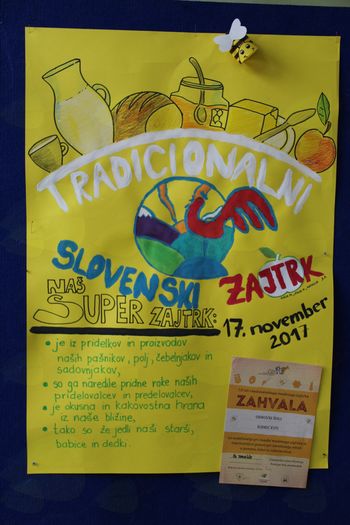 TRADICIONALNI
SLOVENSKI
ZAJTRK
NAŠ
SUPER ZAJTRK:
17. november
2017
• je iz pridelkov in proizvodov
naših pašnikov, polj, čebelnjakov in
sadovnjakov,
• so ga naredile pridne roke naših
pridelovalcev in predelovalcev,
• je okusna in kakovostna hrana
iz naše bližine,
• tako so že jedli naši starši,
babice in dedki.
ZAHVALA